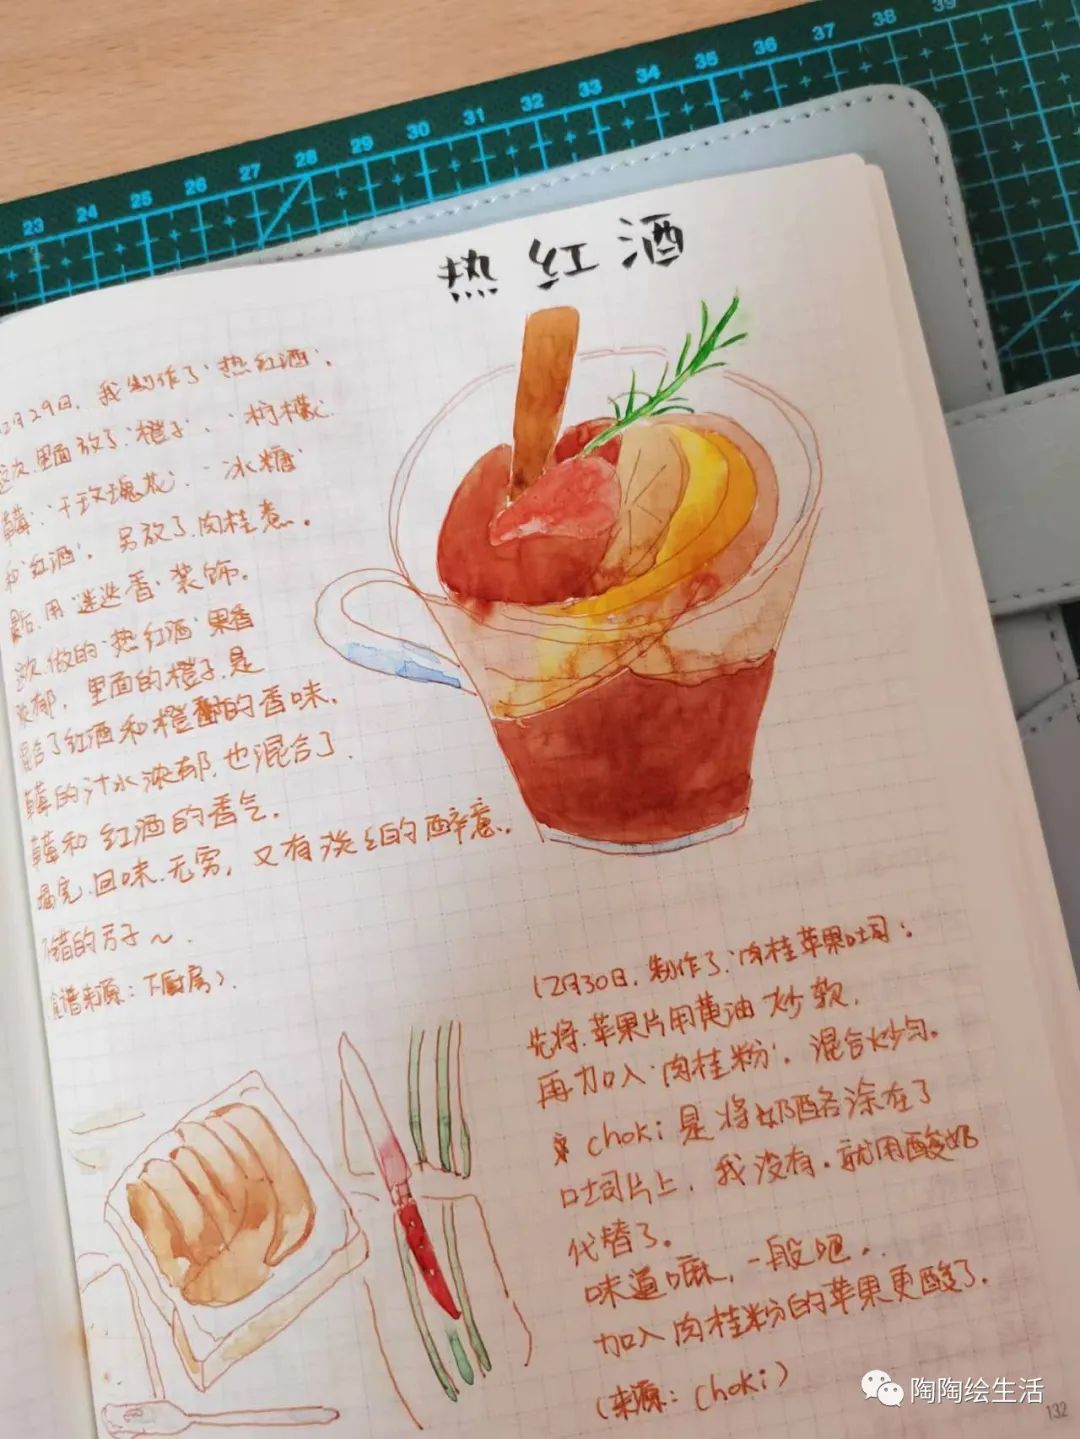 23 24 25 26 27 28 29 30 31 32 33 34 35 36 37 38 39
热红酒
12月29日，我制作了“热红酒”。
这次里面放了“橙子”、“柠檬”
草莓”、“干玫瑰花”、“冰糖”
和“红酒”。另放了肉桂煮。
最后，用“迷迭香”装饰。
次做的“热红酒”果香
浓郁，里面的橙子，是
混合了红酒和橙香的香味。
草莓的汁水浓郁，也混合了
草莓和红酒的香气。
喝完，回味无穷，又有淡淡的醉意。
不错的方子～。
(食谱来源：下厨房)。
12月30日，制作了“肉桂苹果吐司：
先将苹果片用黄油炒软，
再加入“肉桂粉”，混合炒匀。
choki是将奶酪涂在了
吐司片上，我没有，就用酸奶
代替了。
味道嘛，一般吧，
加入肉桂粉的苹果更酸了。
(来源：choki)
陶陶绘生活
132